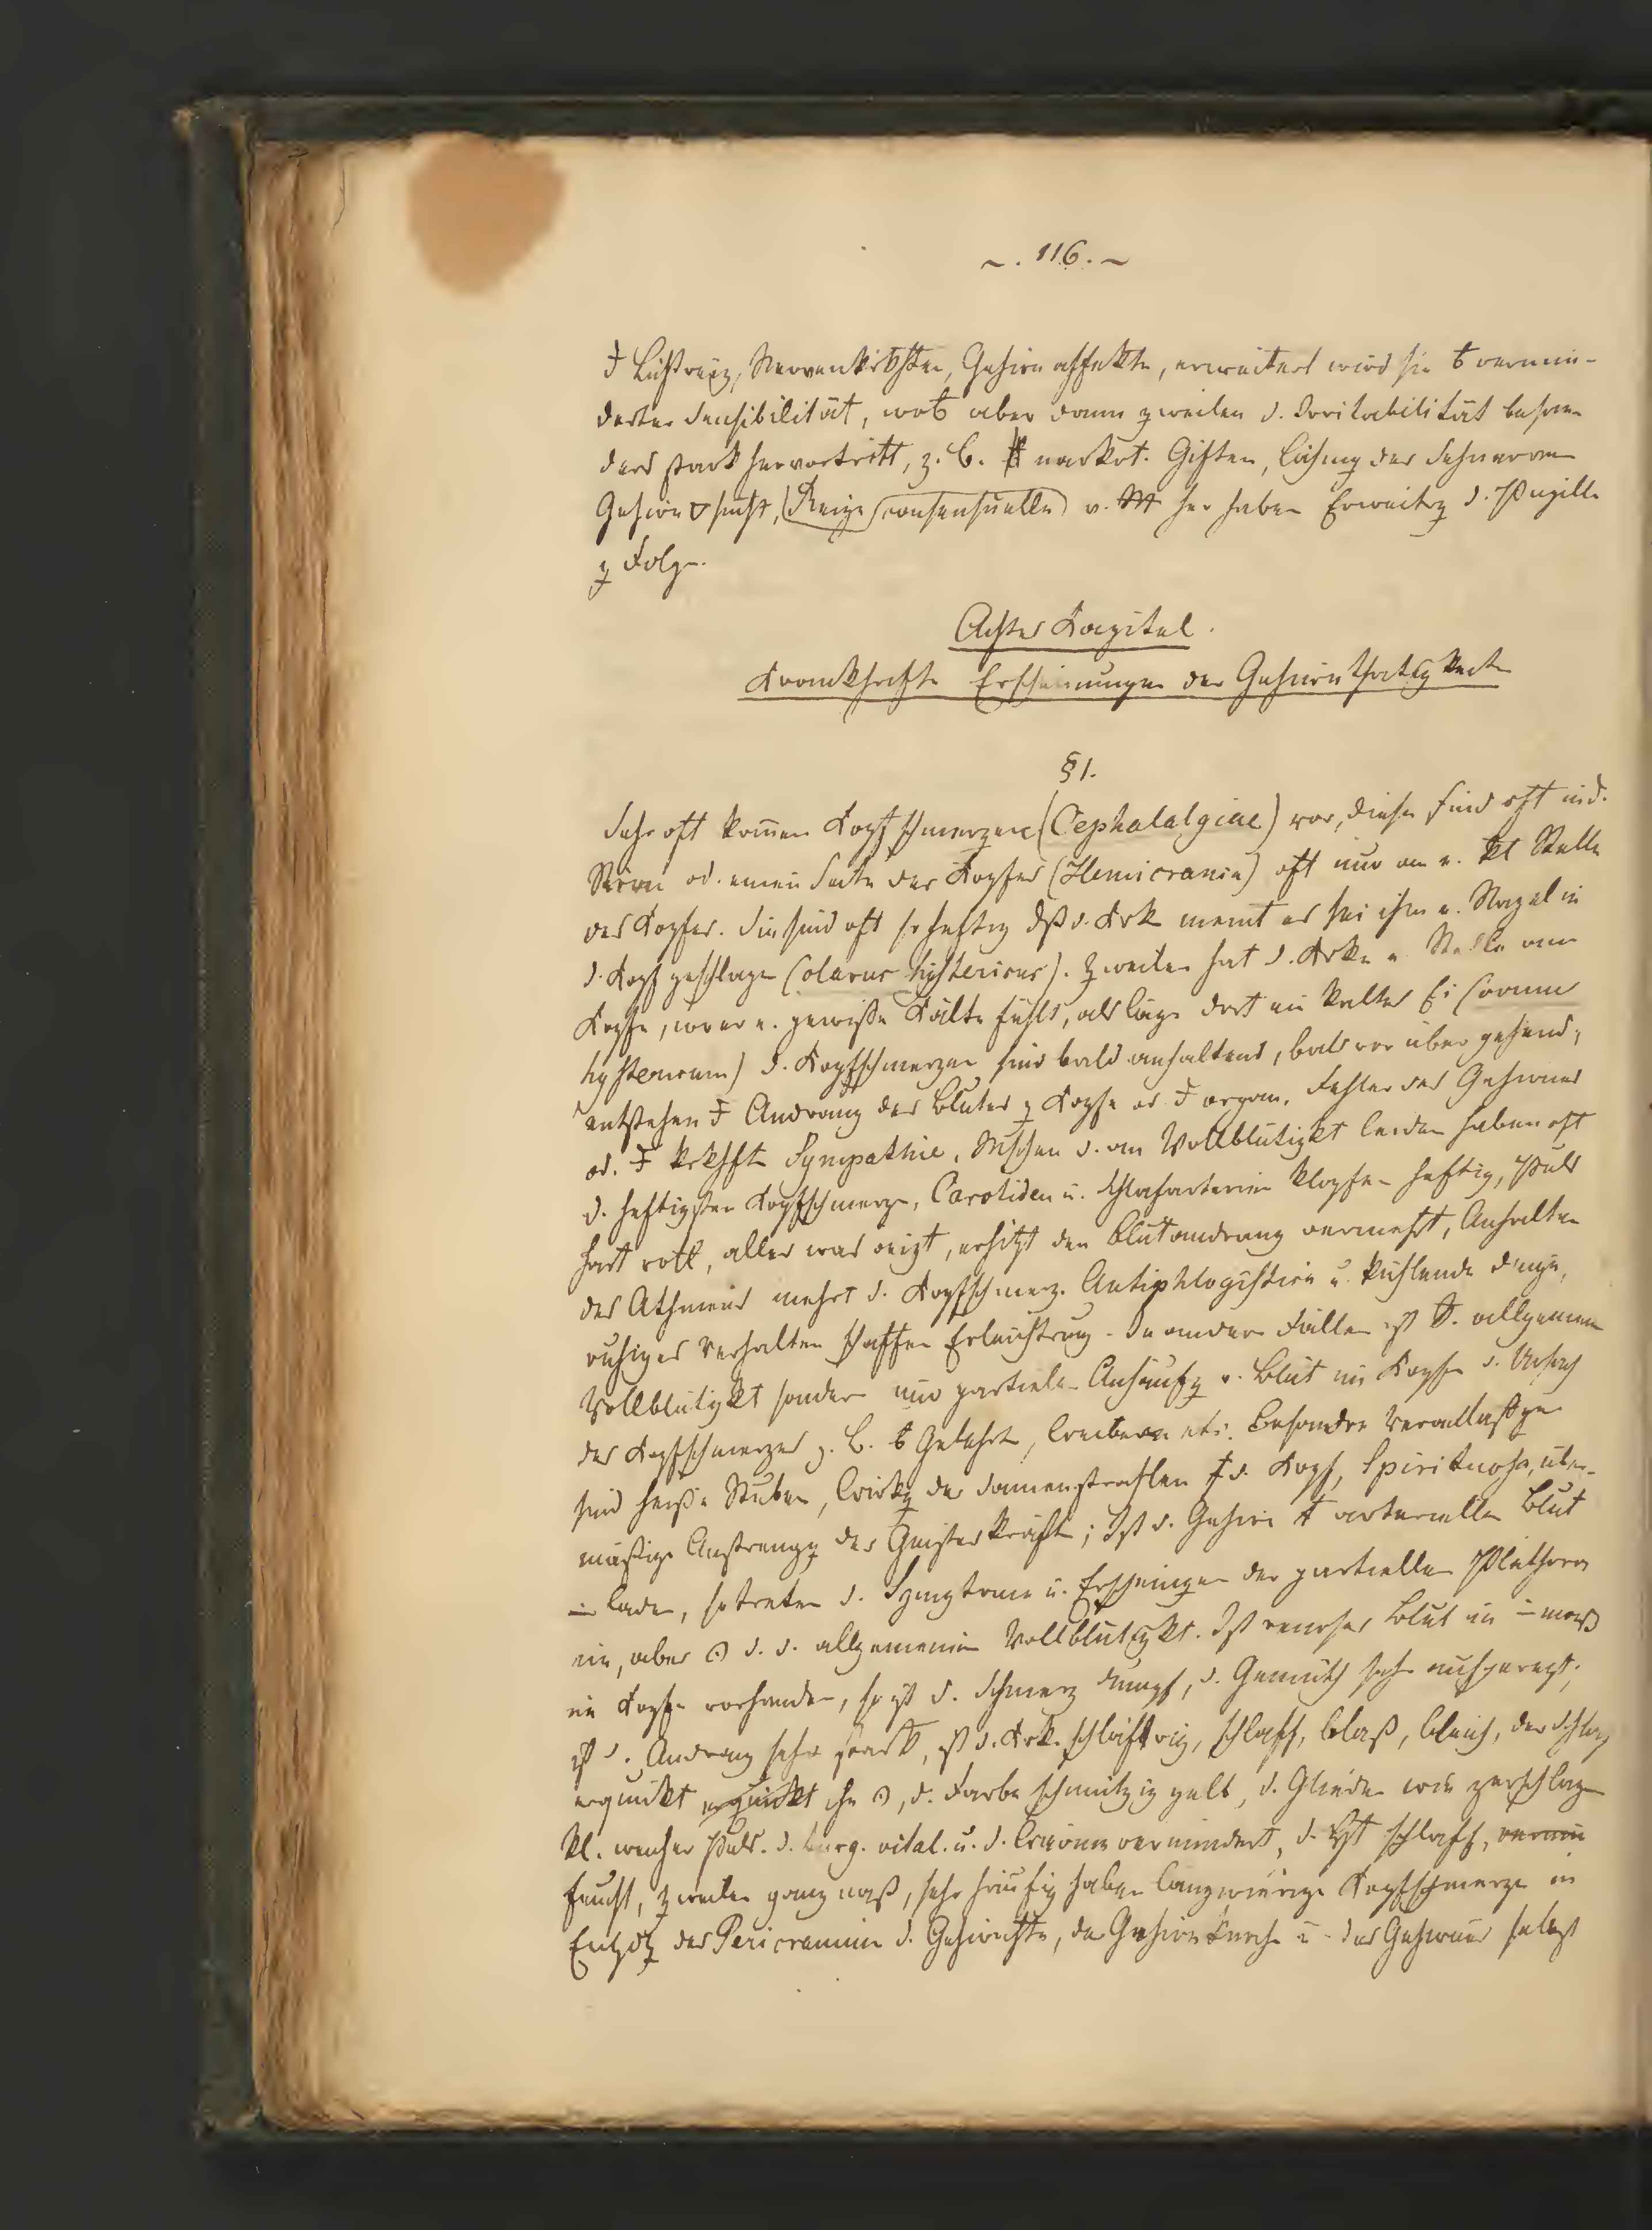 ~. 116. ~
Lichtreiz, Nervenkrkhten, Gehirnaffekte, erweitert wird sie vermin-
derter Sensibilität, wob aber dann zweilen d. Irritabilität beson
ders stark hervortritt, z. B. narkot. Giften, Lähmg des Sehnerven
Gehirn sucht, (Reize (consensuelle) v. her haben Erweitrg d. Pupille
z Folge.
Achtes Kapitel.
Krankhafte Erscheinungen der Gehirnthätigkeit
§ 1.
Sehr oft kom̄en Kopfschmerzen (Cephalalgiae) vor, diese sind oft in d.
Stirn od. einen Seite des Kopfes (Hemicrania) oft nur an e. kl Stelle
des Kopfes. Sie sind oft so heftig dß d. Krk meint es sei ihm e. Nagel in
d. Kopf geschlagen (clavus hystericus). Zweilen hat d. Krke e Stelle am
Kopfe, wo er e. gewiße Kälte fühlt, als läge dort ein kaltes Ei (ovum
hystericum) d. Kopfschmerzen sind bald anhaltend, bald vorübergehend,
entstehen Andrang des Blutes z Kopfe od organ. Fehler des Gehirnes
od. krkhfte Sympathie. Mschen d. an Vollblütigkt leiden haben oft
d. heftigsten Kopfschmerzen, Carotiden u. Schlafarterien klopfen heftig, Puls
hart voll, alles was reizt, erhitzt den Blutandrang vermehrt, Anhalten
des Athmens mehrt d. Kopfschmerz. Antiphlogistica u. kühlende Dinge,
ruhiges Verhalten schaffen Erleichterung. In andern Fällen ist allgemeine
Vollblütigkt sondern nur partielle Anhäufg v. Blut im Kopfe d. Ursach
des Kopfschmerzes z. B. Gelehrten, etc. Besondre Veranlaßgen
sind heiße Stuben, Wirkg der Sonnenstrahlen d. Kopf, Spirituosa, über-
mäßige Anstrengg der Geisteskräfte; Ist d. Gehirn arteriellem Blut
laden, so treten d. Symptome u. Erscheingen der partiellen Plethora
ein, aber d. d. allgemeinen Vollblütigkt. Ist venöses Blut im
im Kopfe vorhanden, so ist d. Schmerz dumpf, d. Gemüth sehr aufgeregt,
ist d. Andrang sehr stark, ist d. Krk. schläfrig, schlaff, blaß, bleich, der Schlaf
erquickt erquickt ihn, d. Farbe schmutzig gelb, d. Glieder wie zerschlagen
kl. weicher Puls. d. turg. vital. u. d. Wärme vermindert, d. Hst schlaff,
feucht, zweilen ganz naß, sehr häufig haben langwierige Kopfschmerzen in
Entzdg des Pericranium d. Gehirnhäute, der Gehirnknochen u. des Gehirnes selbst